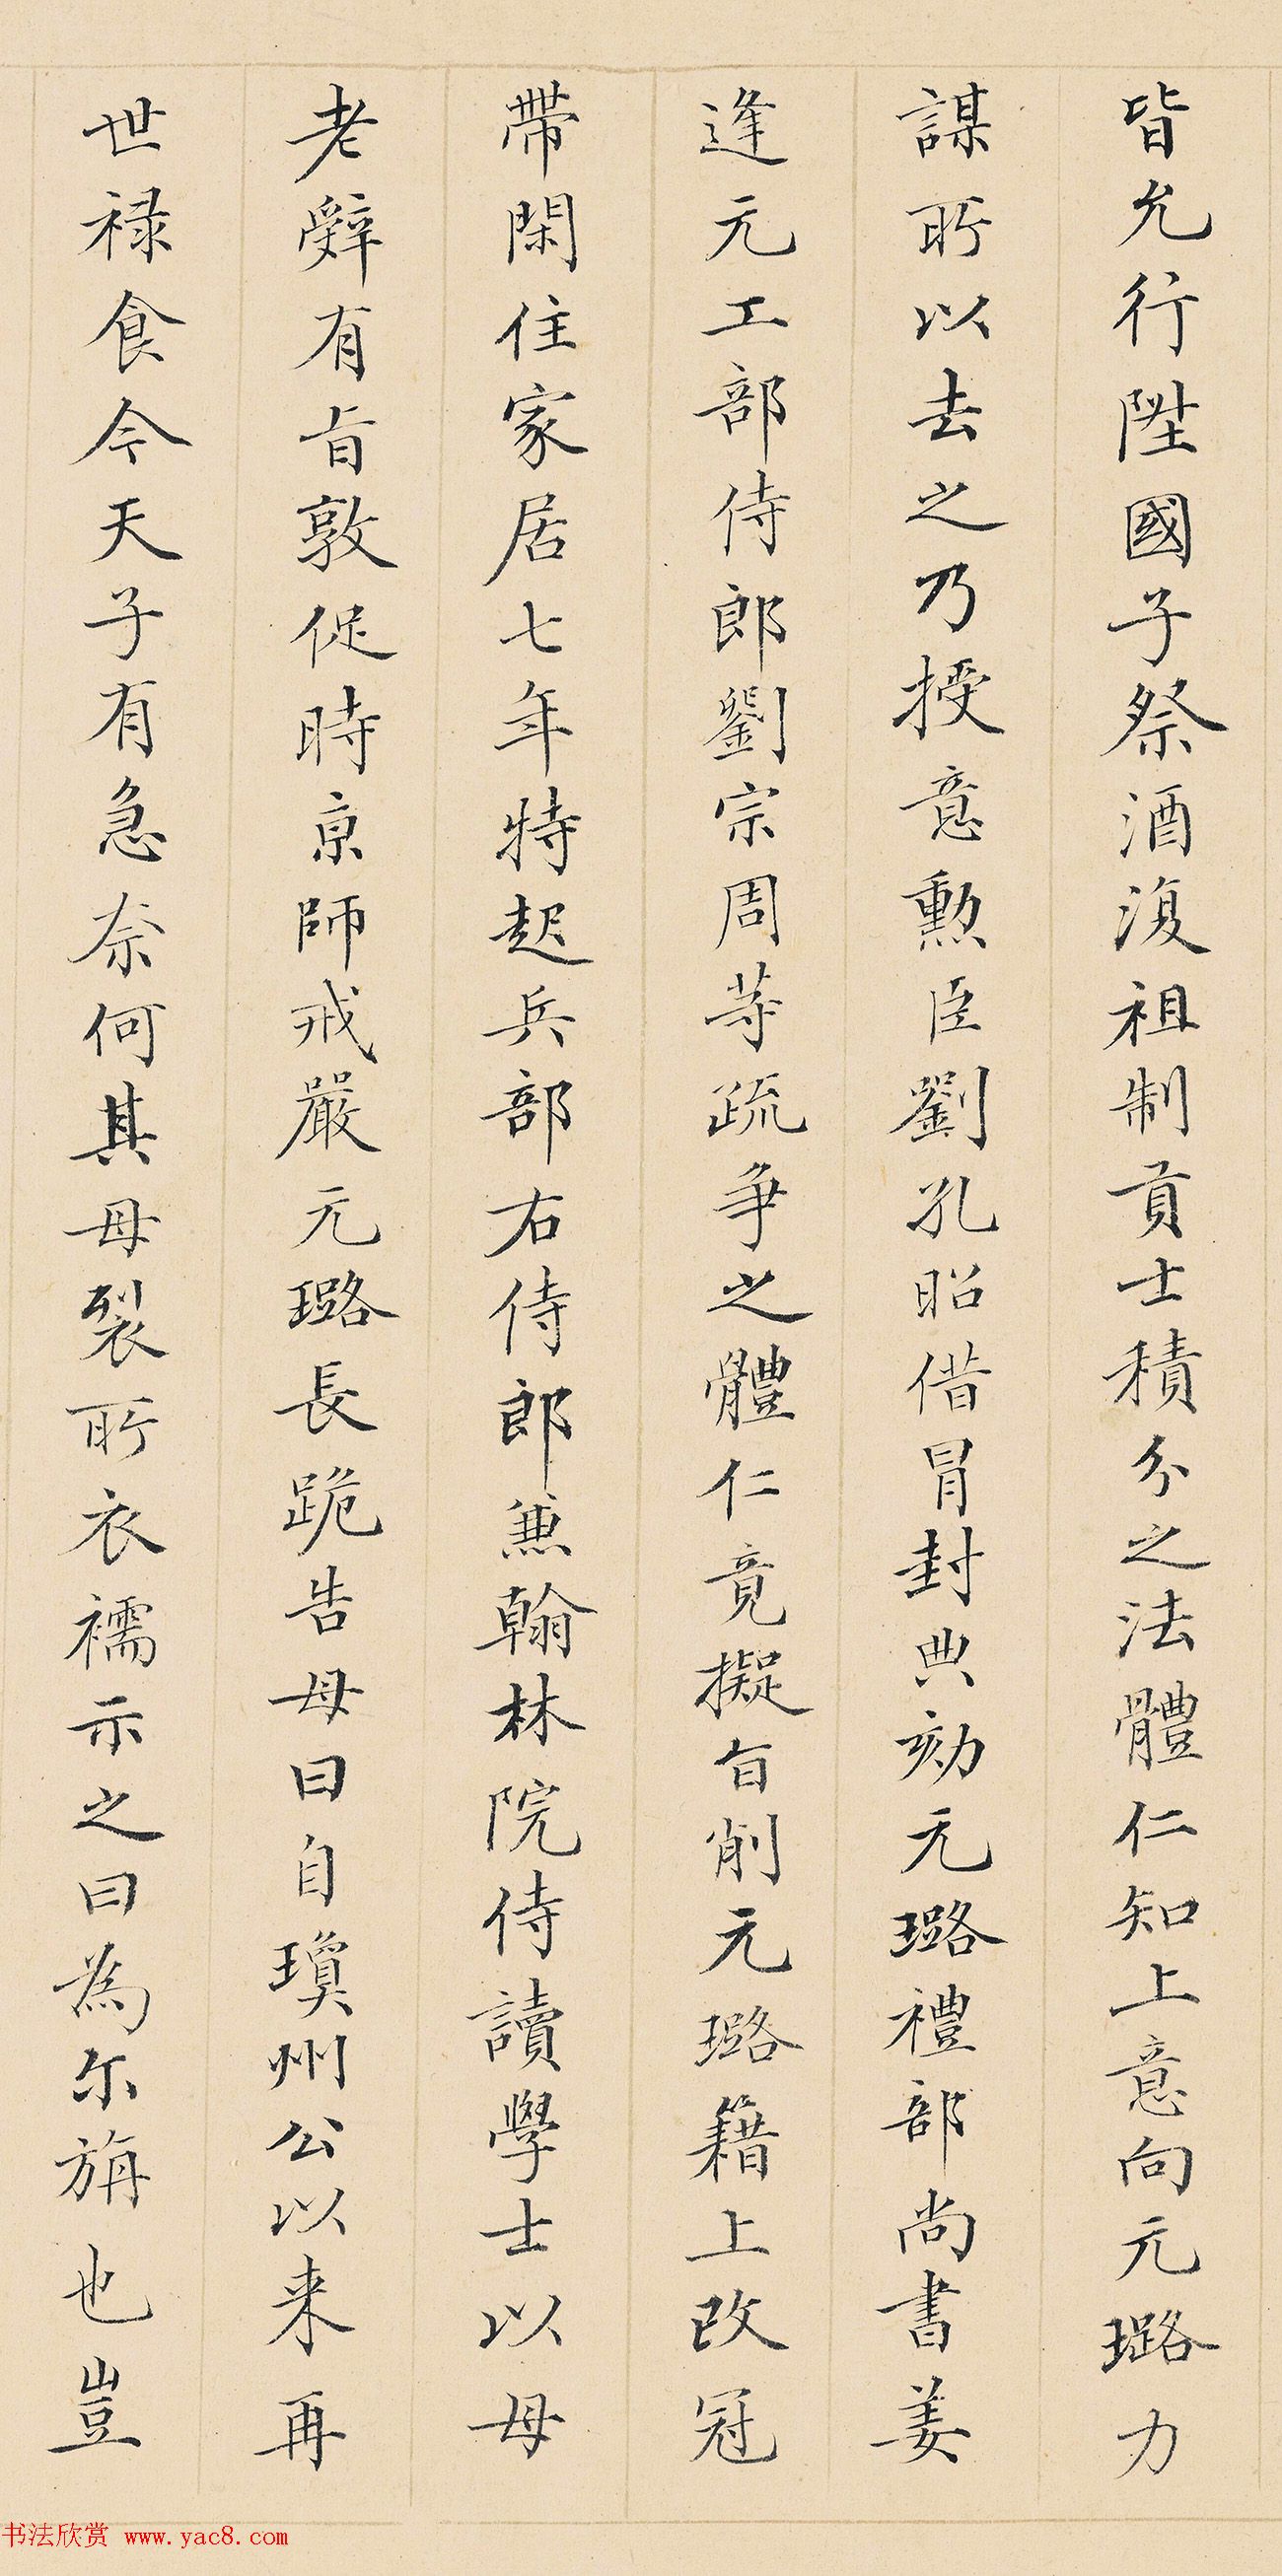 皆允行陞國子祭酒復祖制貢士積分之法體仁知上意向元璐力
謀所以去之乃授意勲臣劉孔昭借冒封典劾元璐禮部尚書姜
逢元工部侍郎劉宗周等疏争之體仁竟擬旨削元璐籍上改冠
帶閑住家居七年特起兵部右侍郎兼翰林院侍讀學士以母
老辭有旨敦促時京師戒嚴元璐長跪告母曰自瓊州公以来再
世禄食今天子有急奈何其母裂所衣襦示之曰為尔旃也豈
书法欣赏 www.yac8.com